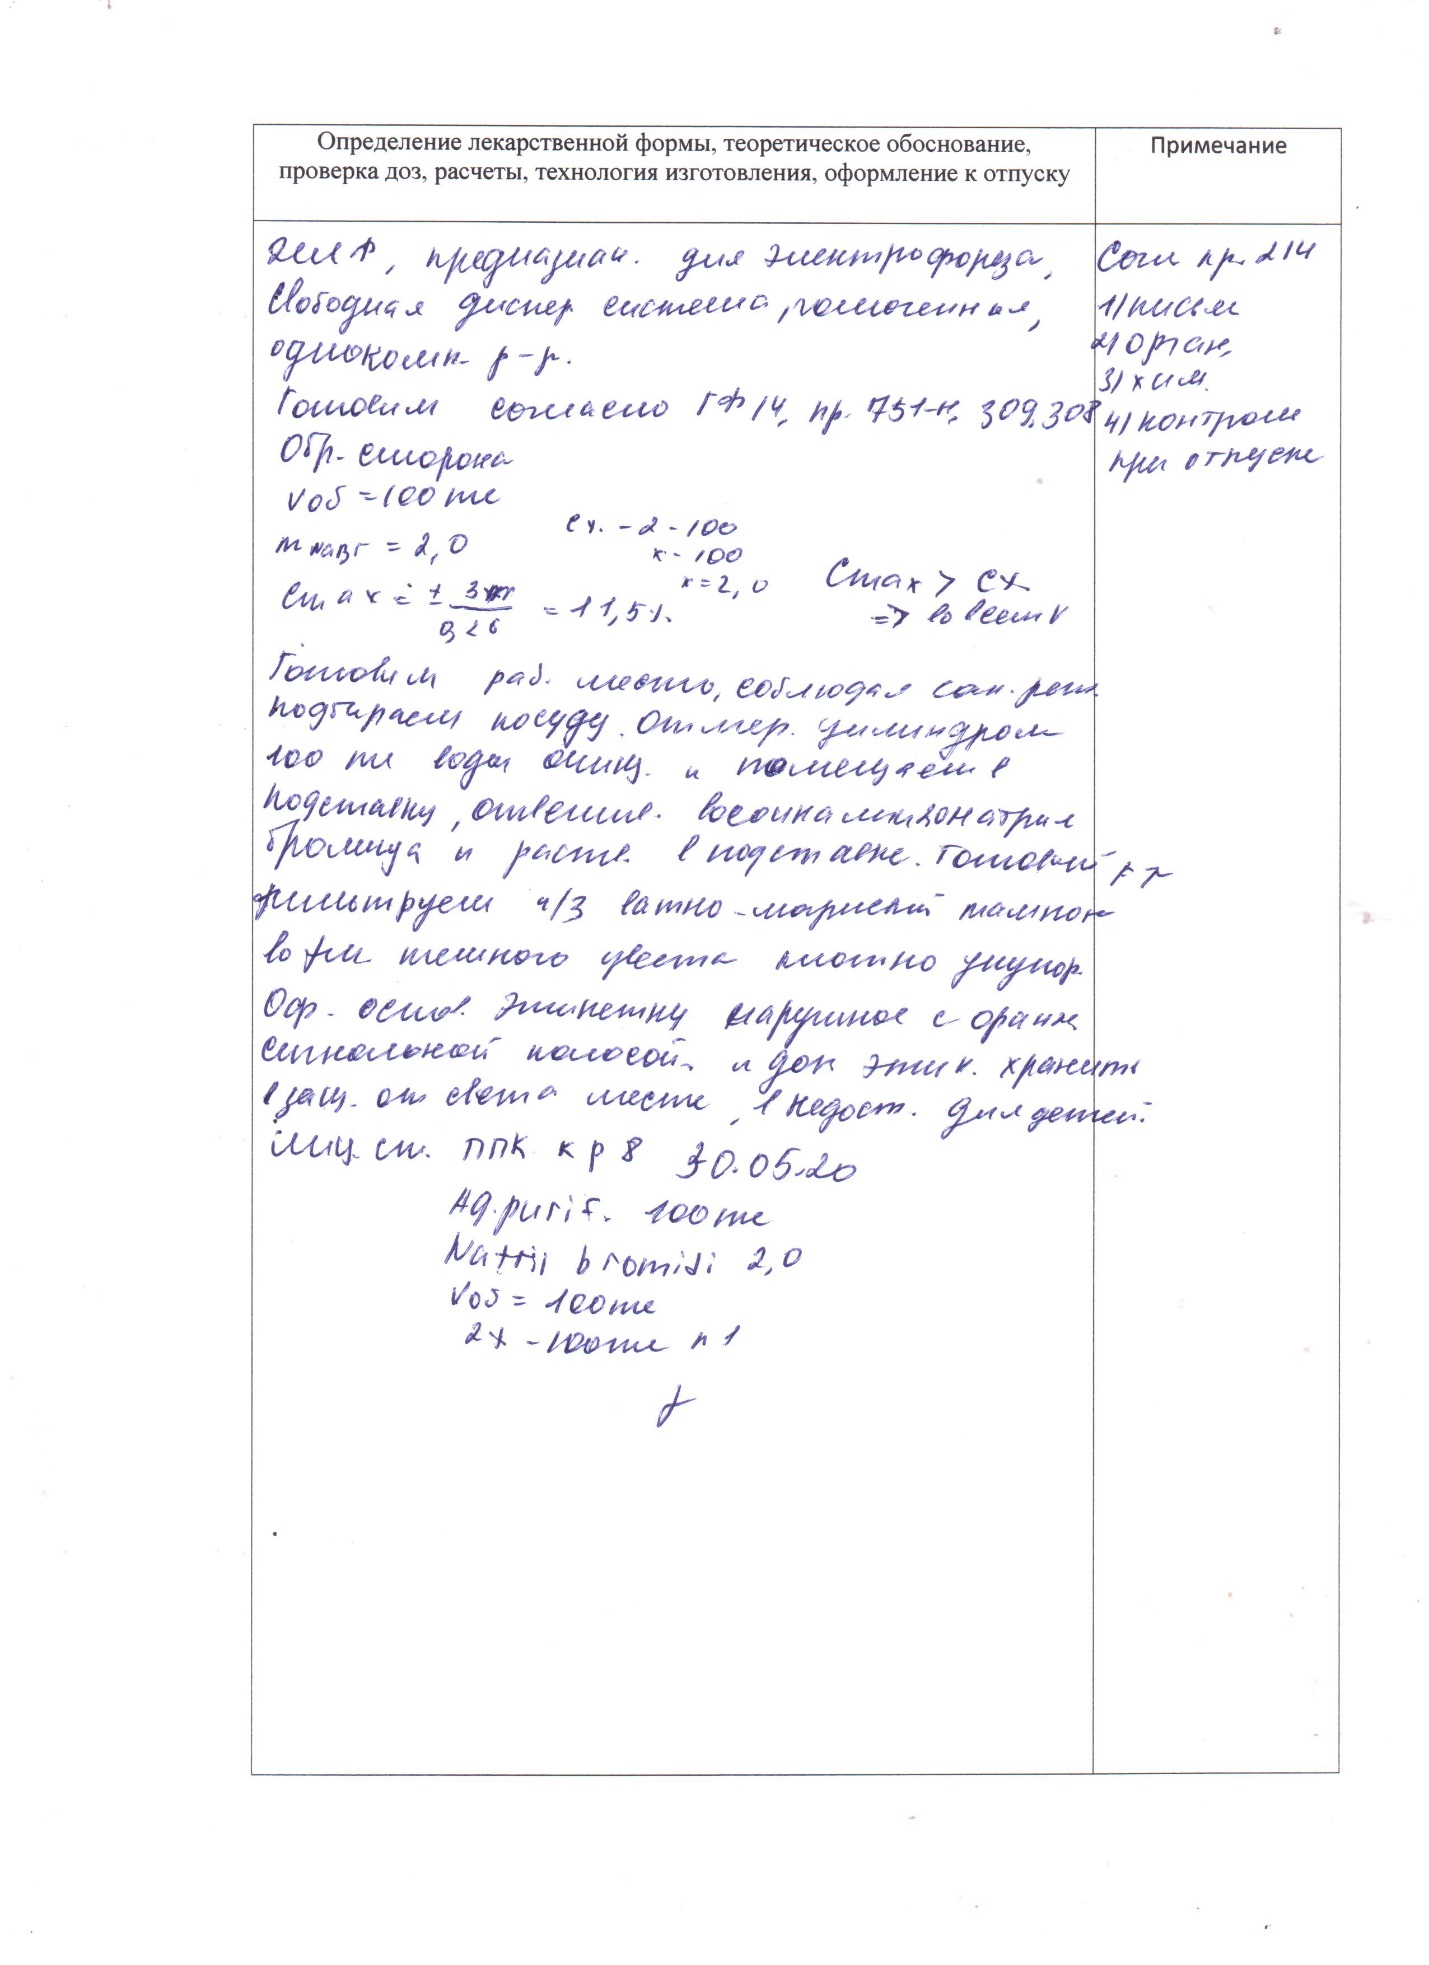 Определение лекарственной формы, теоретическое обоснование,
проверка доз, расчеты, технология изготовления, оформление к отпуску
Примечание
ЖЛФ, предназнач. для электрофореза,
Свободная диспер система,
однокомп. р-р.
Готовим согласно ГФ 14, пр. 751-н, 309, 308
Обр. сторона
Vоб = 100 мл
m NaBr = 2,0
Cх. - 2 - 100
x - 100
x = 2,0
Cmax = ± 3 / 0,26 = 11,5%
Cmax > Cх
=> во всем V
Готовим раб. место, соблюдая сан. реж.
подбираем посуду. Отмер. цилиндром
100 мл воды очищ. и помещаем в
подставку, отвешив. 2,0 натрия
бромида и раств. в подставке. Готовый р-р
фильтруем ч/з ватно-марлевый тампон
во фл темного цвета плотно укупор.
Оф. основ. этикетку наружное с оранж
сигнальной полосой и доп этик. хранить
в защ. от света месте, в недост. для детей.
Лиц. ст. ППК к р 8 30.05.20
Aq. purif. 100 мл
Natrii bromidi 2,0
Vоб = 100 мл
Согл пр. 214
1) письм
2) орган,
3) хим.
4) контроль
при отпуске